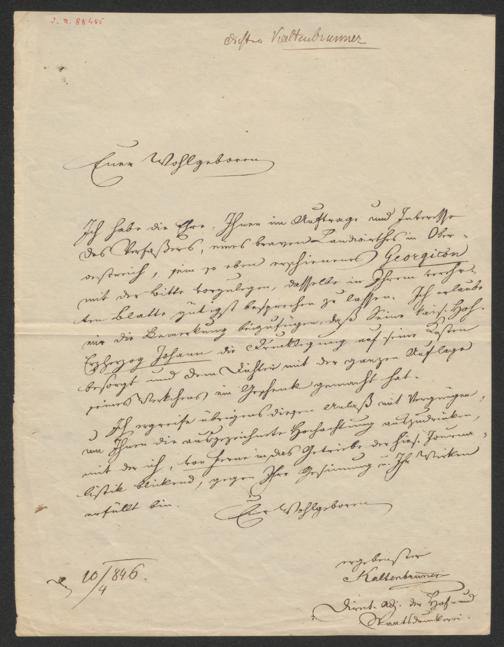 J. N. 88405
Dichter Kaltenbrunner
Euer Wohlgeboren
Ich habe die Ehre, Ihnen im Auftrage und Interesse
des Verfaßers, eines braven Landwirthes in Ober-
oestreich, sein so eben erschienenes Georgicon
mit der Bitte vorzulegen, dasselbe in Ihrem verehr-
ten Blatte gütigst besprechen zu lassen. Ich erlaube
mir die Bemerkung beizufügen, daß Seine kais. Hoh.
Erzherzog Johann die Drucklegung auf seine Kosten
besorgt und dem Dichter mit der ganzen Auflage
seines Werkchens ein Geschenk gemacht hat.
Ich ergreife übrigens diesen Anlaß mit Vergnügen,
um Ihnen die ausgezeichnete Hochachtung auszudrücken,
mit der ich, von ferne in das Getriebe der hies. Journa-
listik blickend, gegen Ihre Gesinnung u. Ihr Wirken
erfüllt bin.
Euer Wohlgeboren
10/4 846.
ergebenster
Kaltenbrunner
Direct. Adj. der Hof- und
Staatsdruckerei.